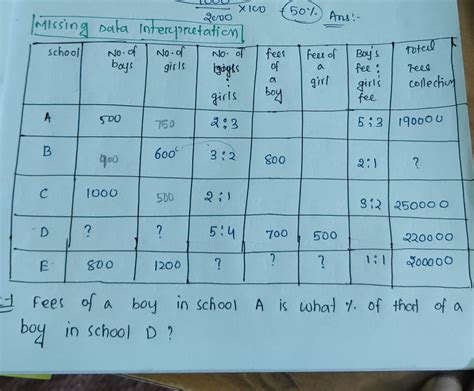 1000/2000 × 100 = 50% Ans:-
Missing Data Interpretation
School | No. of boys | No. of girls | No. of boys : girls | fees of a boy | Fees of a girl | Boy's fee : girls fee | Total Fees collection
A | 500 | 750 | 2:3 | | | 5:3 | 190000
B | 900 | 600 | 3:2 | 800 | | 2:1 | ?
C | 1000 | 500 | 2:1 | | | 3:2 | 250000
D | ? | ? | 5:4 | 700 | 500 | | 220000
E | 800 | 1200 | ? | ? | ? | 1:1 | 200000
Fees of a boy in school A is what % of that of a
boy in school D ?